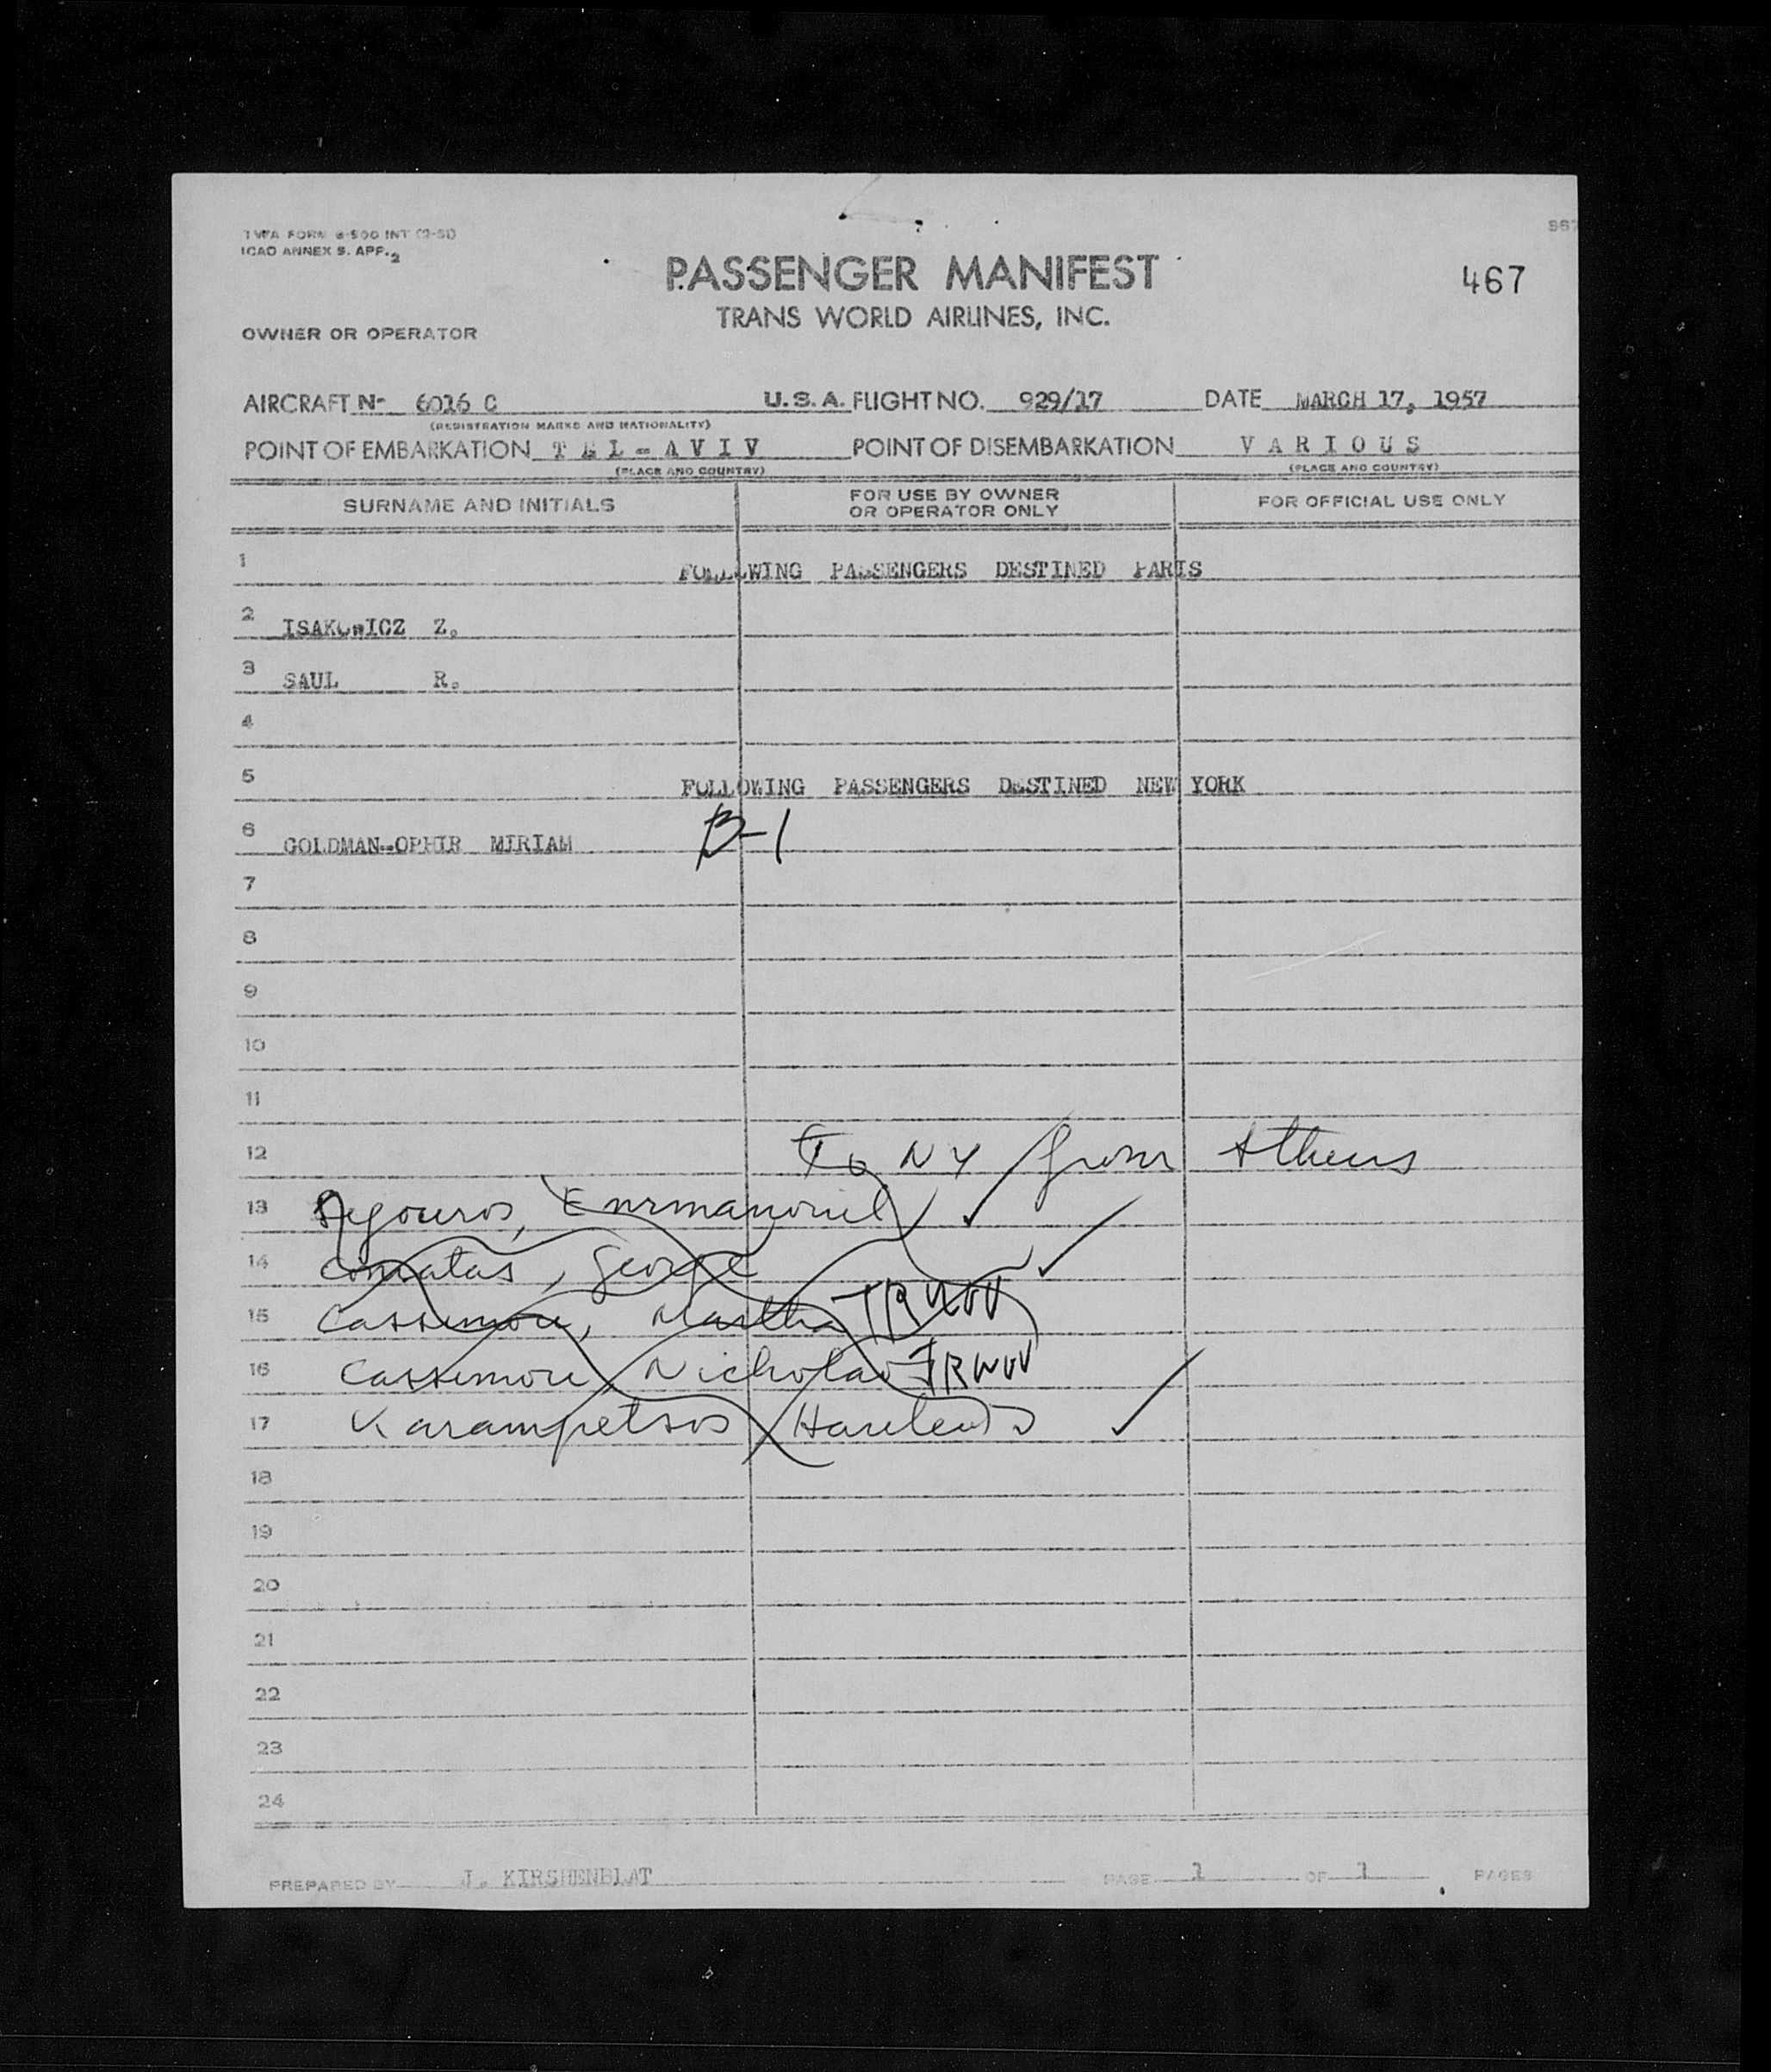 TWA FORM 6-500 INT (2-51)
ICAO ANNEX 9. APP. 2
PASSENGER MANIFEST
467
TRANS WORLD AIRLINES, INC.
OWNER OR OPERATOR
AIRCRAFT N- 6026 C U.S.A. FLIGHT NO. 929/17 DATE MARCH 17, 1957
(REGISTRATION MARKS AND NATIONALITY)
POINT OF EMBARKATION TEL-AVIV POINT OF DISEMBARKATION VARIOUS
(PLACE AND COUNTRY) (PLACE AND COUNTRY)
SURNAME AND INITIALS FOR USE BY OWNER OR OPERATOR ONLY FOR OFFICIAL USE ONLY
1 FOLLOWING PASSENGERS DESTINED PARIS
2 ISAKOWICZ Z.
3 SAUL R.
4
5 FOLLOWING PASSENGERS DESTINED NEW YORK
6 GOLDMAN-OPHIR MIRIAM B-1
7
8
9
10
11
12 To NY from Athens
13 Agouros,
14 George
15 Cassimore, Martha
16 Cassimore, Nicholas
17 Karampetsos
18
19
20
21
22
23
24
PREPARED BY J. KIRSHENBLAT PAGE 1 OF 1 PAGES